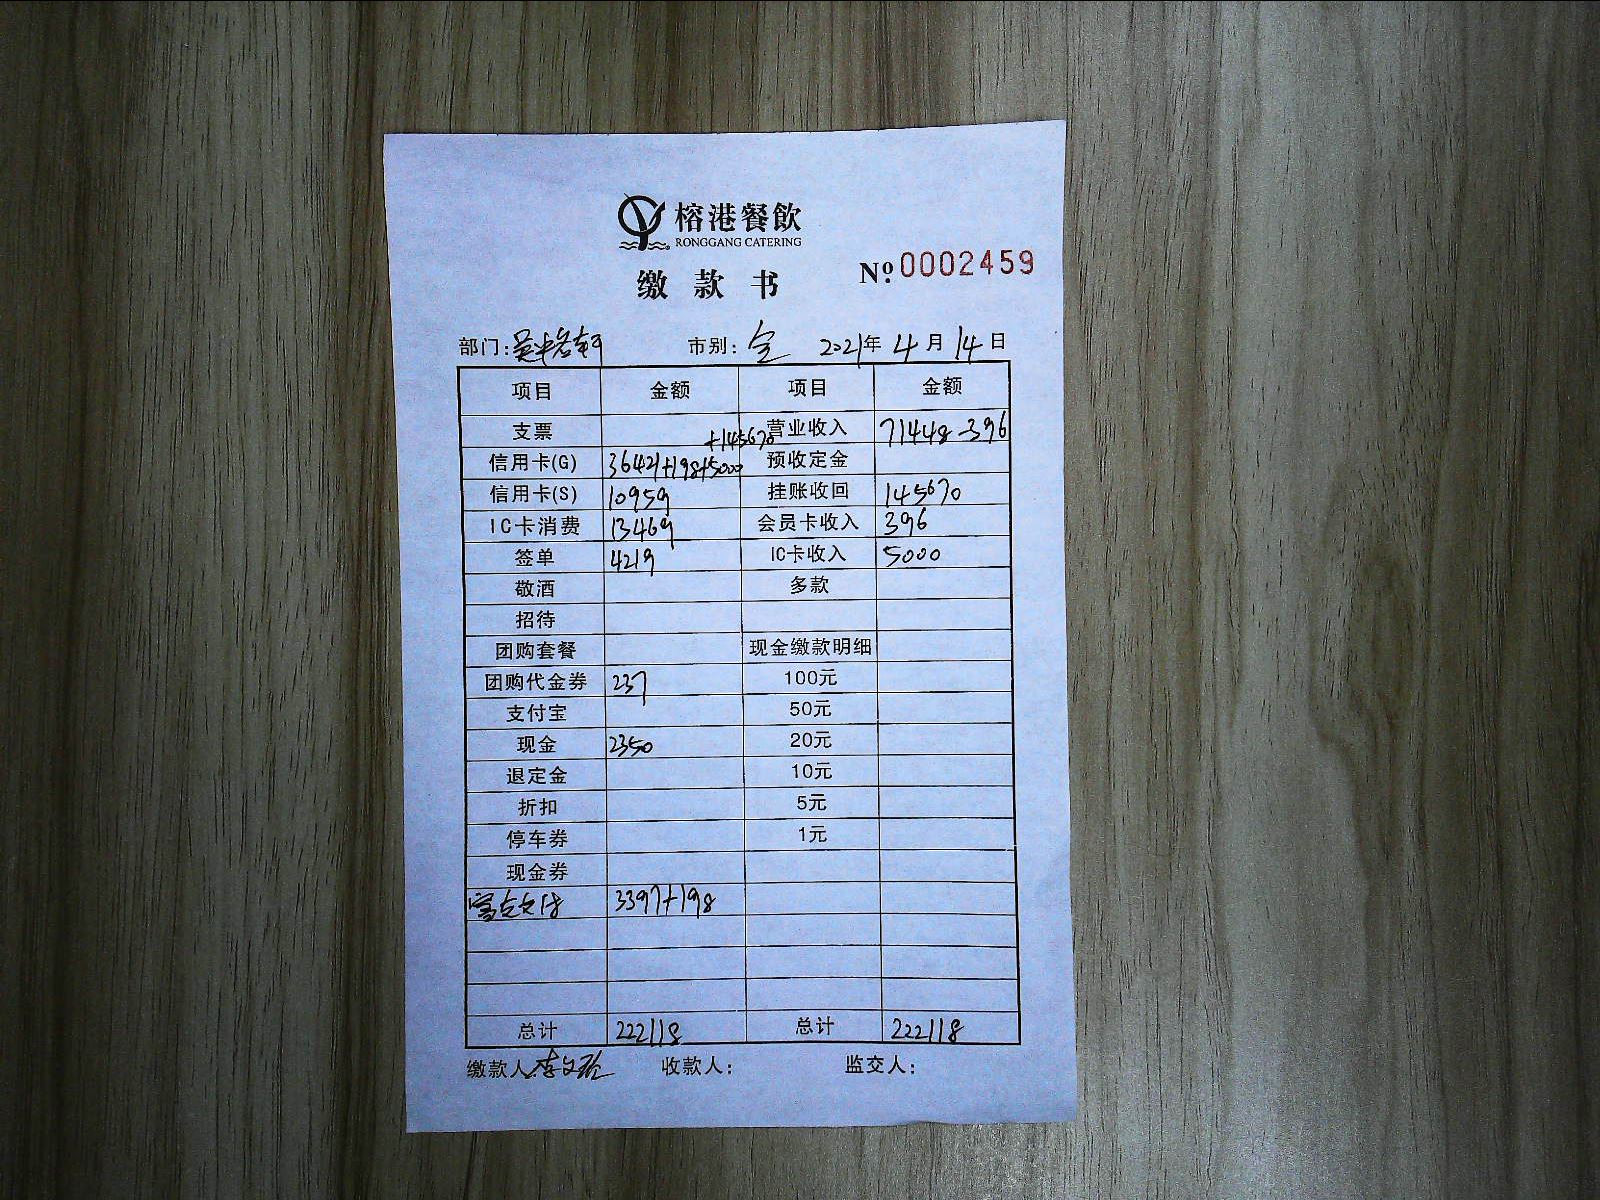 榕港餐飲
RONGGANG CATERING
缴款书 Nº 0002459
部门: 市别: 全 2021年 4月 14日
项目 金额 项目 金额
支票 营业收入 71448-396
信用卡(G) 36421+198+5000+145670 预收定金
信用卡(S) 10959 挂账收回 145670
IC卡消费 13469 会员卡收入 396
签单 4219 IC卡收入 5000
敬酒 多款
招待
团购套餐 现金缴款明细
团购代金券 237 100元
支付宝 50元
现金 2350 20元
退定金 10元
折扣 5元
停车券 1元
现金券
3397+198
总计 222118 总计 222118
缴款人: 收款人: 监交人: